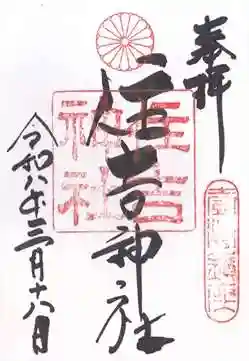 奉拝
住吉神社
住吉
神社
令和八年三月十八日